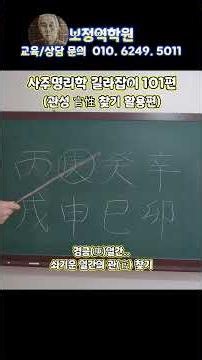 보정역학원
교육/상담 문의 010. 6249. 5011
사주명리학 길라잡이 101편
(관성 官性 찾기 활용편)
丙庚癸辛
戌申巳卯
경금(庚)일간..
쇠기운 일간의 관(官) 찾기